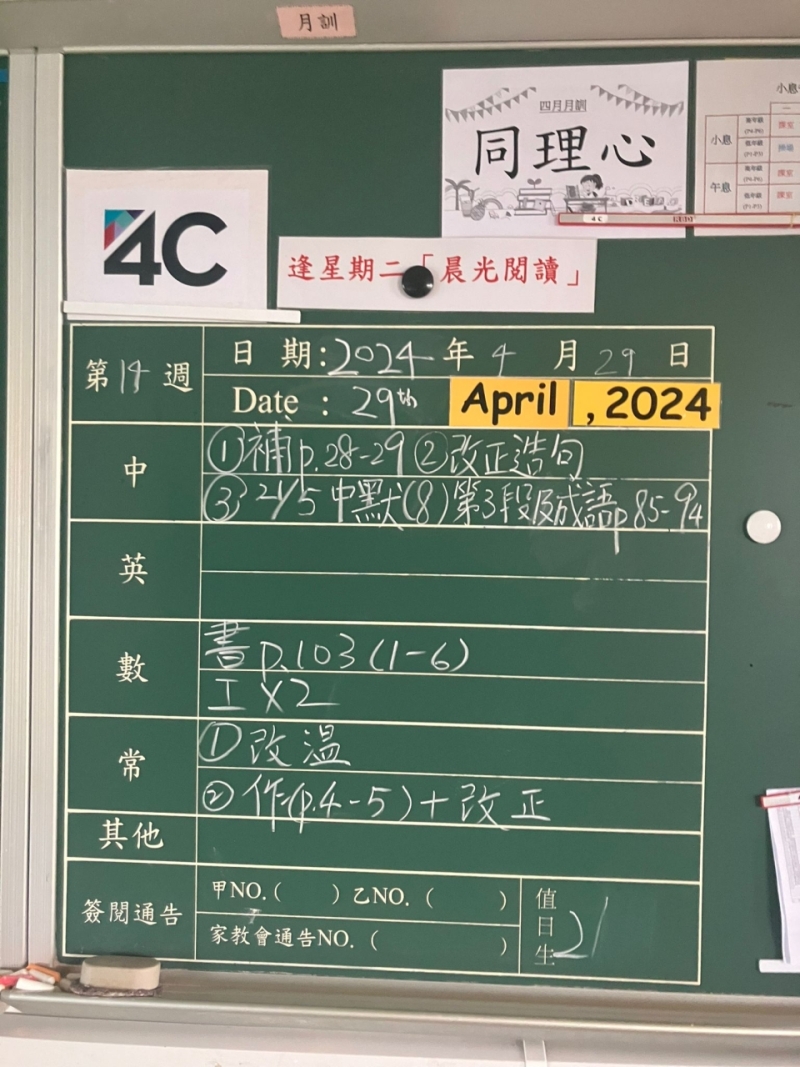 月訓
四月月訓
同理心
小息
午息
4C
逢星期二「晨光閱讀」
第19週
日 期:2024年4月29日
Date : 29th April , 2024
中
①補p.28-29 ②改正造句
③ 2/5 中默(8)第3段及成語p85-94
英
數
書p.103(1-6)
工X2
常
①改溫
②作(p.4-5)+改正
其他
簽閱通告
甲NO.( ) 乙NO.( )
家教會通告NO.( )
值日生
21